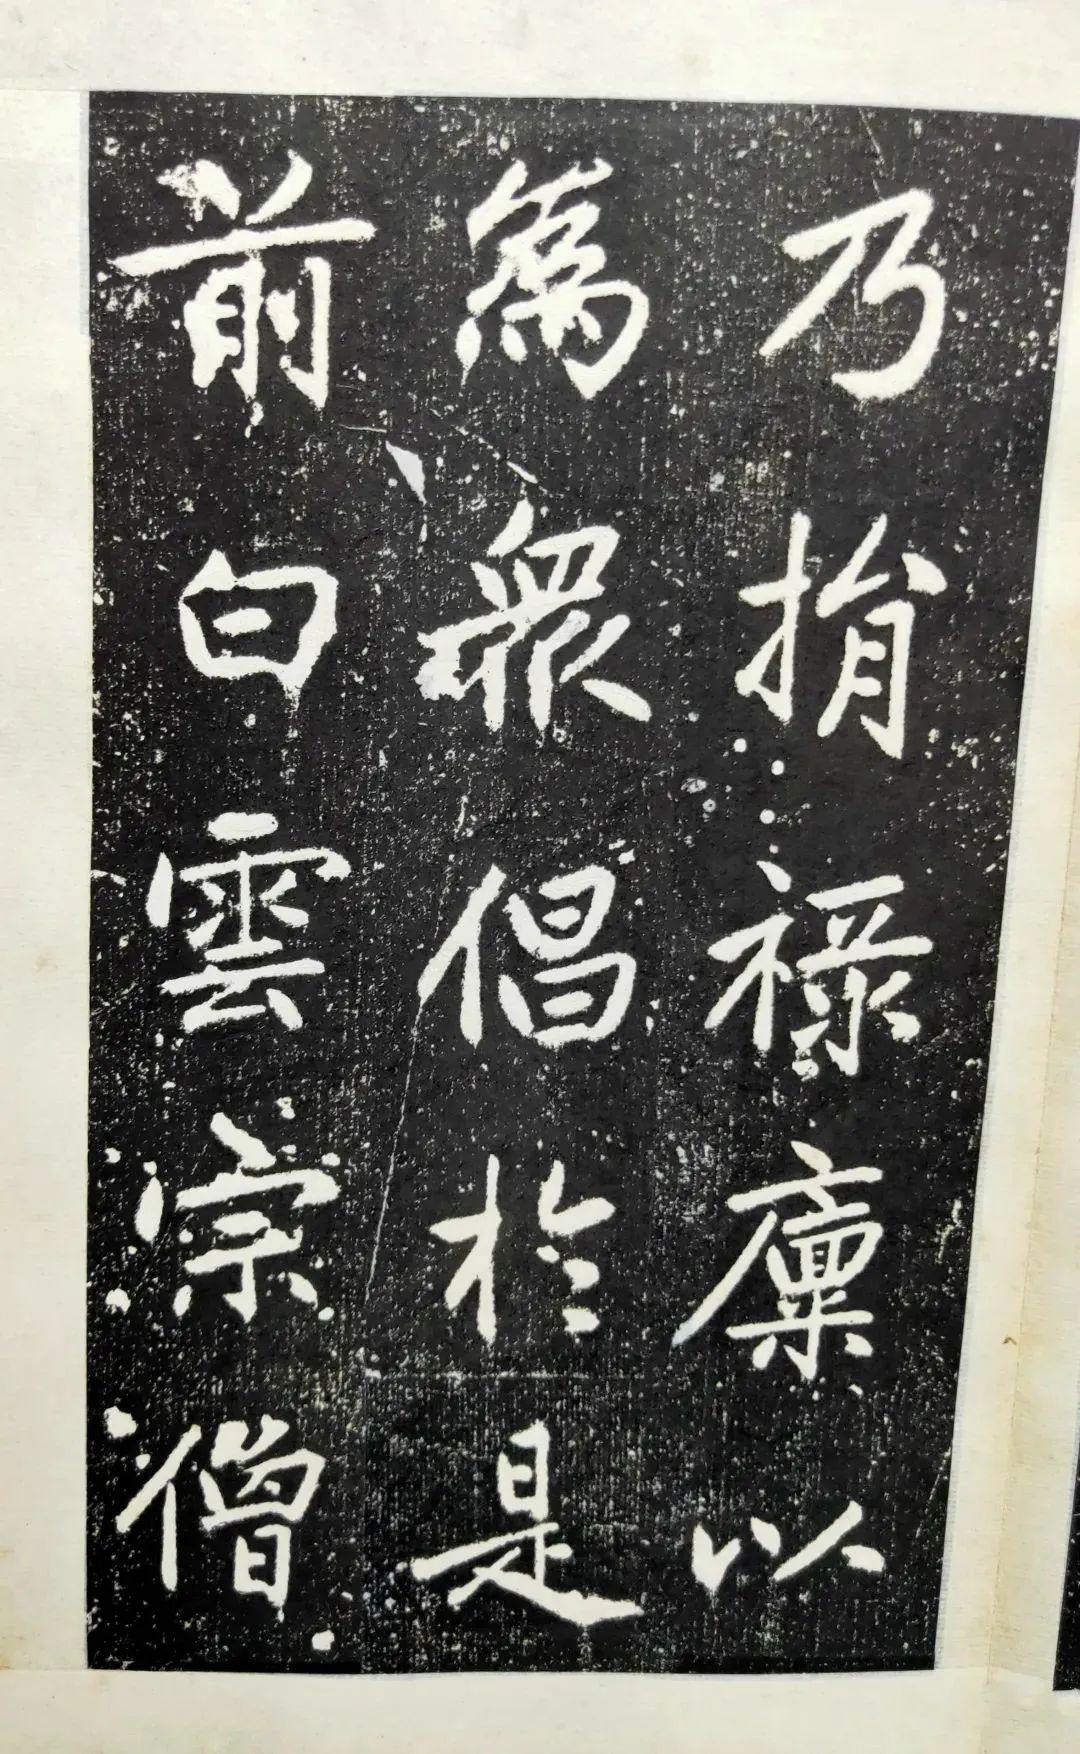 乃捐禄廩以
為衆倡於是
前白雲宗僧